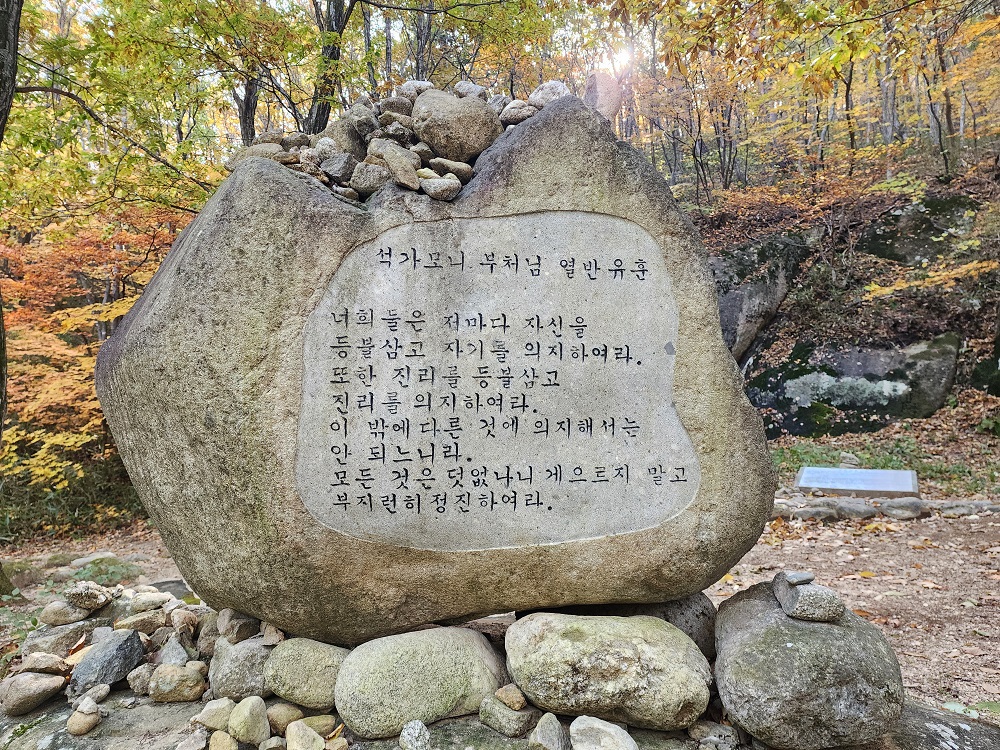 석가모니 부처님 열반유훈
너희들은 저마다 자신을
등불삼고 자기를 의지하여라.
또한 진리를 등불삼고
진리를 의지하여라.
이 밖에 다른 것에 의지해서는
안 되느니라.
모든 것은 덧없나니 게으르지 말고
부지런히 정진하여라.